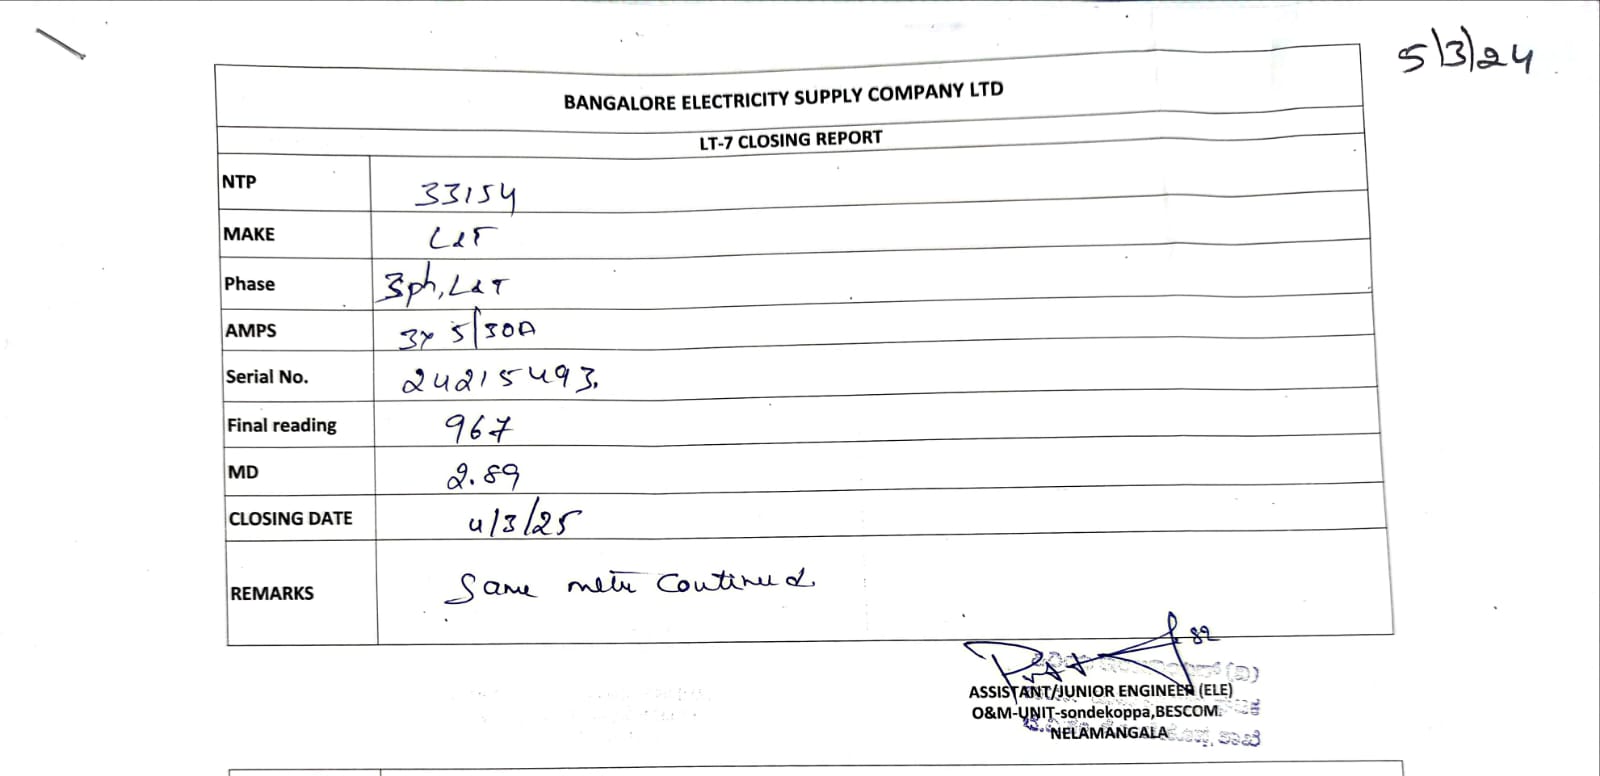 5/3/24
BANGALORE ELECTRICITY SUPPLY COMPANY LTD
LT-7 CLOSING REPORT
NTP 33154
MAKE L&T
Phase 3ph, L&T
AMPS 3x 5/30A
Serial No. 24215493.
Final reading 967
MD 2.89
CLOSING DATE 4/3/25
REMARKS Same mete continued.
82
ASSISTANT/JUNIOR ENGINEER (ELE)
O&M-UNIT-sondekoppa,BESCOM.
NELAMANGALA